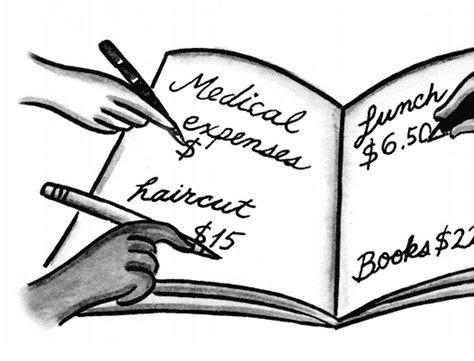 Medical
expenses
$
haircut
$15
Lunch
$6.50
Books $22